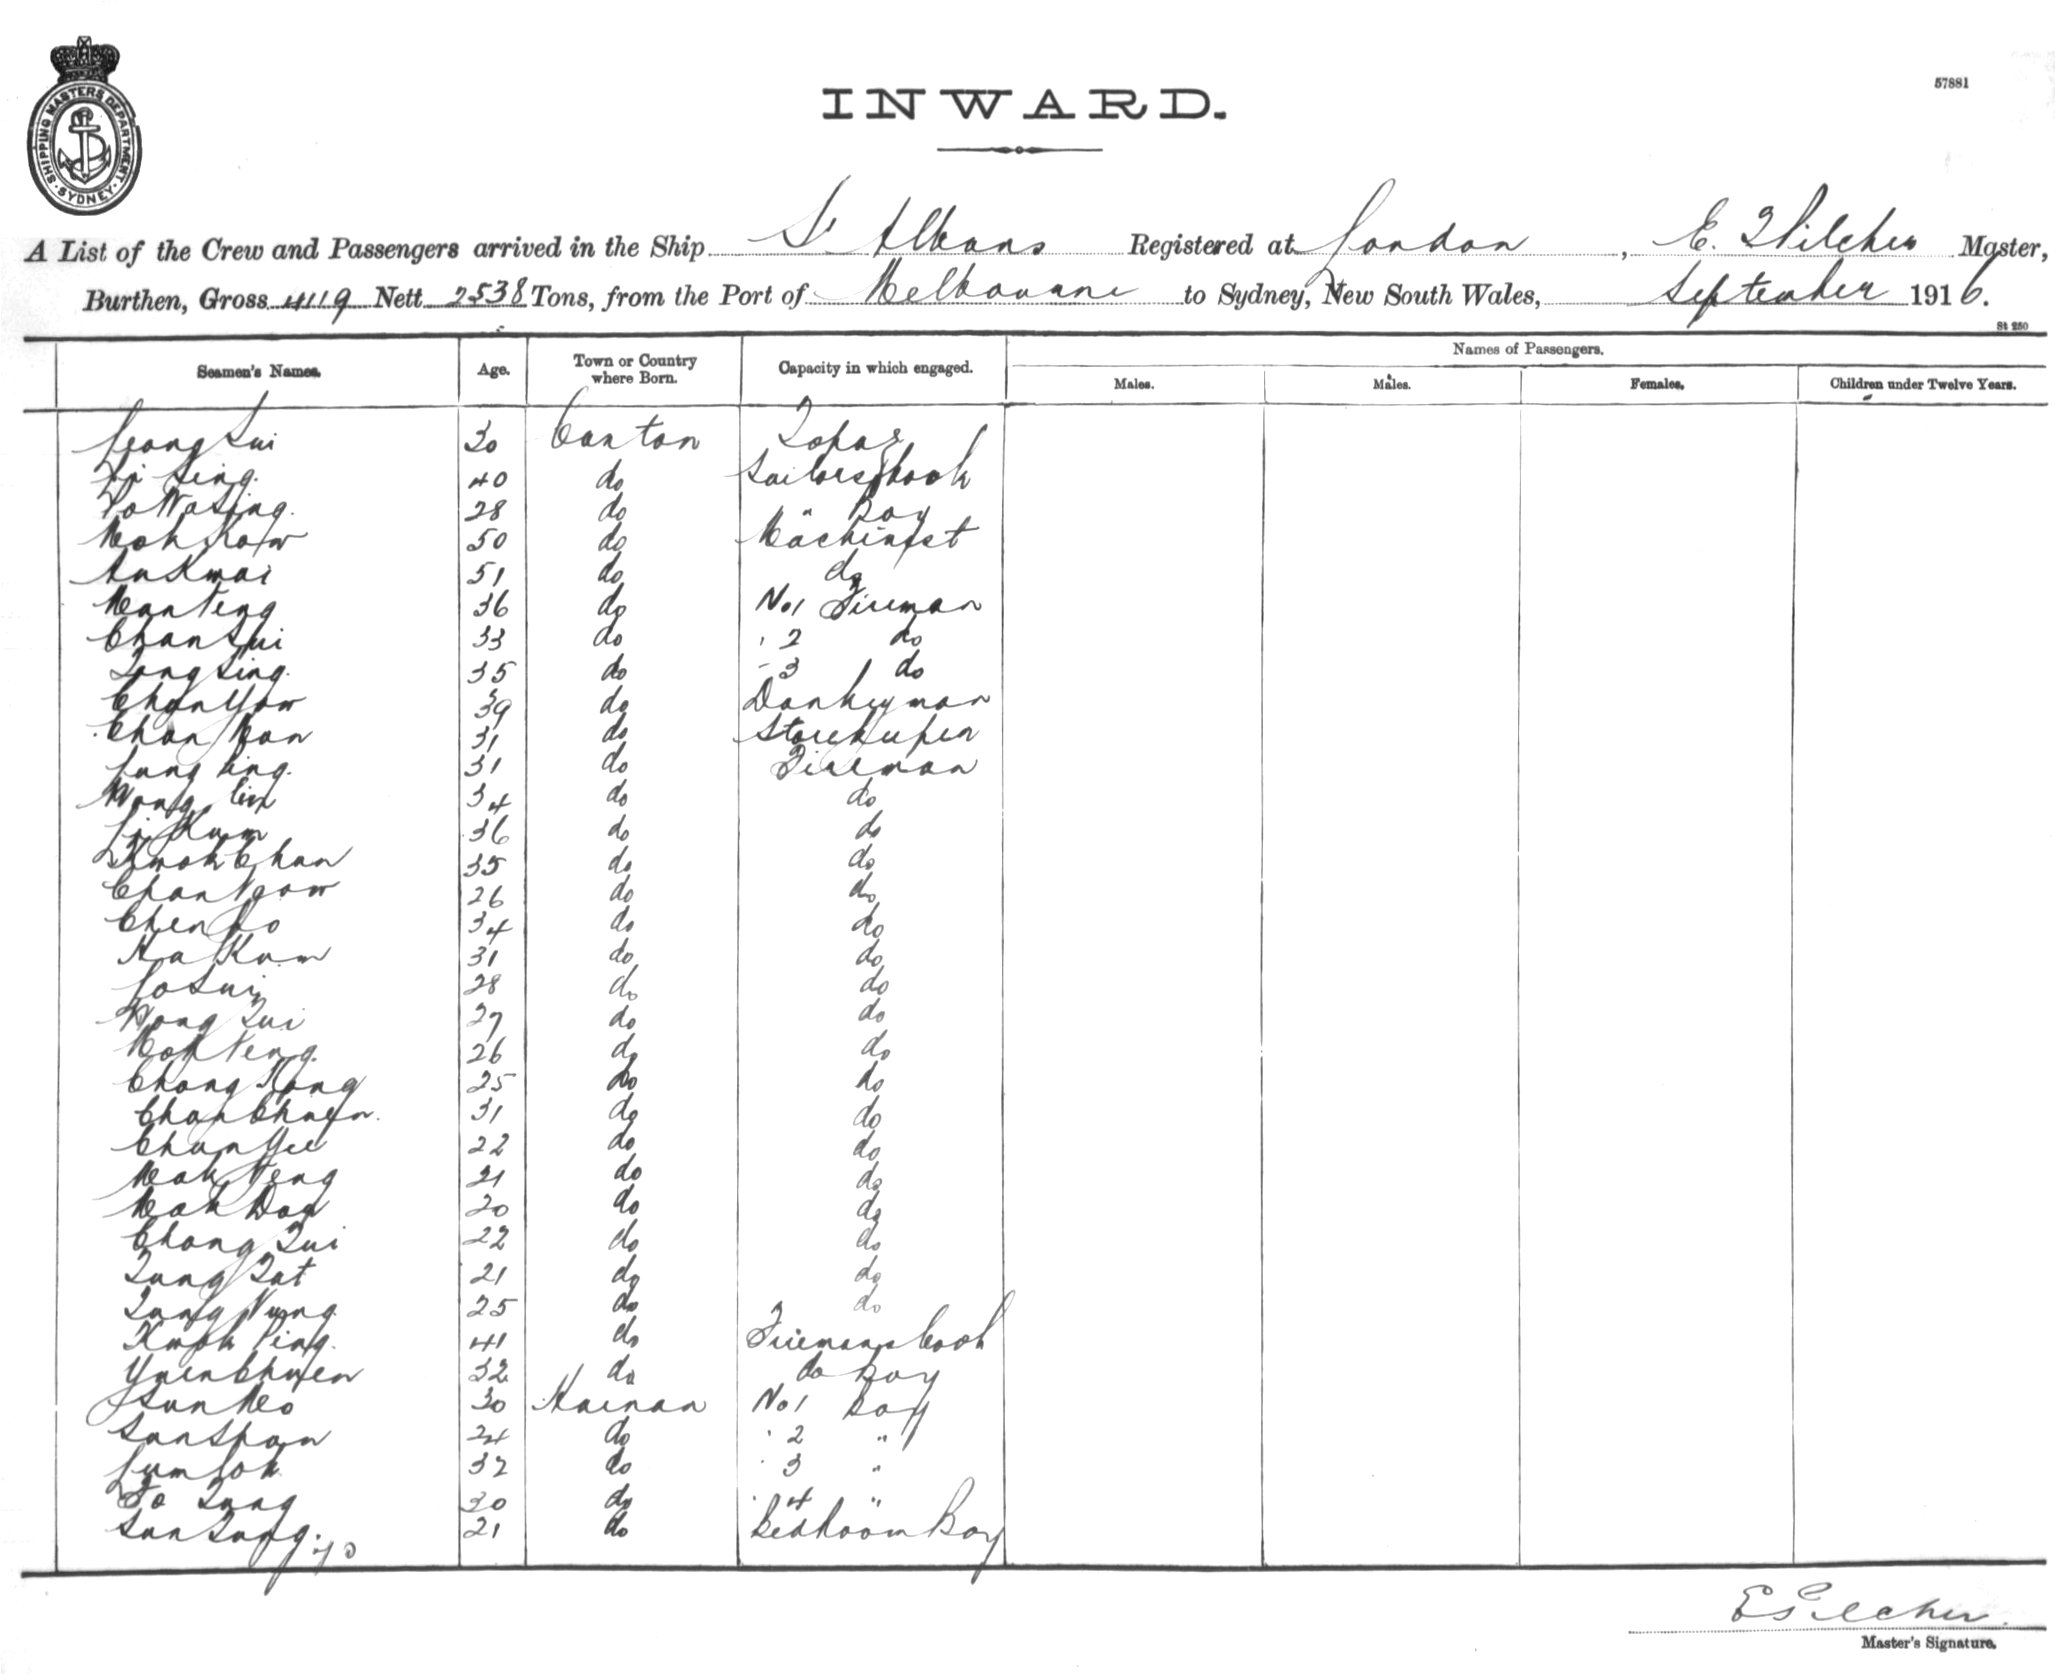 SHIPPING MASTERS DEPARTMENT
SYDNEY
57881
INWARD.
A List of the Crew and Passengers arrived in the Ship St Albans Registered at London, E. Pilcher Master,
Burthen, Gross 4119 Nett 2538 Tons, from the Port of Melbourne to Sydney, New South Wales, September 1916.
St 250
Seamen's Names. Age. Town or Country where Born. Capacity in which engaged. Names of Passengers.
Males. Males. Females. Children under Twelve Years.
Leong Sui 30 Canton Topaz
Li Sing. 40 do Sailors Cook
Wa Sing. 28 do " Boy
Mok Kow 50 do Machinist
Au Kwai 51 do do
Man Teng 36 do No 1 Fireman
Chan Sui 33 do 2 do
Tong Sing. 35 do 3 do
Chan Yow 39 do Donkeyman
Chan Kan 31 do Storekeeper
Lung King. 31 do Fireman
Wong Lin 34 do do
Li Kum 36 do do
Kwok Chan 35 do do
Chan Ngow 26 do do
Chen Ho 34 do do
Ha Kum 31 do do
Lo Sui 28 do do
Wong Tui 27 do do
Mok Neng. 26 do do
Chong Kong 25 do do
Chan Chuen. 31 do do
Chan Yee 22 do do
Mok Teng 21 do do
Mok Dog 20 do do
Chong Tui 22 do do
Tung Tat 21 do do
Tung Nung 25 do do
Kwok Ping. 41 do Firemans Cook
Yuen Chuen 32 do do Boy
Sun Meo 30 Hainan No 1 Boy
San Span 24 do 2 "
Lum Lok 32 do 3 "
Fo Tung 30 do 4 "
San Tung. 21 do Bedroom Boy
E Pilcher.
Master's Signature.